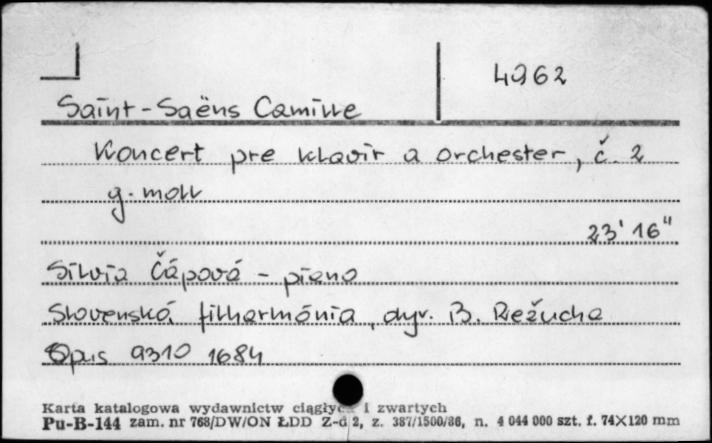 4962
Saint-Saëns Camille
Koncert pre klavír a orchester, č. 2
g-moll
23' 16"
Silvia Čápová - piano
Slovenská filharmónia, dyr. B. Režucha
Opus 9310 1684
Karta katalogowa wydawnictw ciągłych i zwartych
Pu-B-144 zam. nr 768/DW/ON ŁDD Z-d 2, z. 387/1500/86, n. 4 044 000 szt. f. 74X120 mm